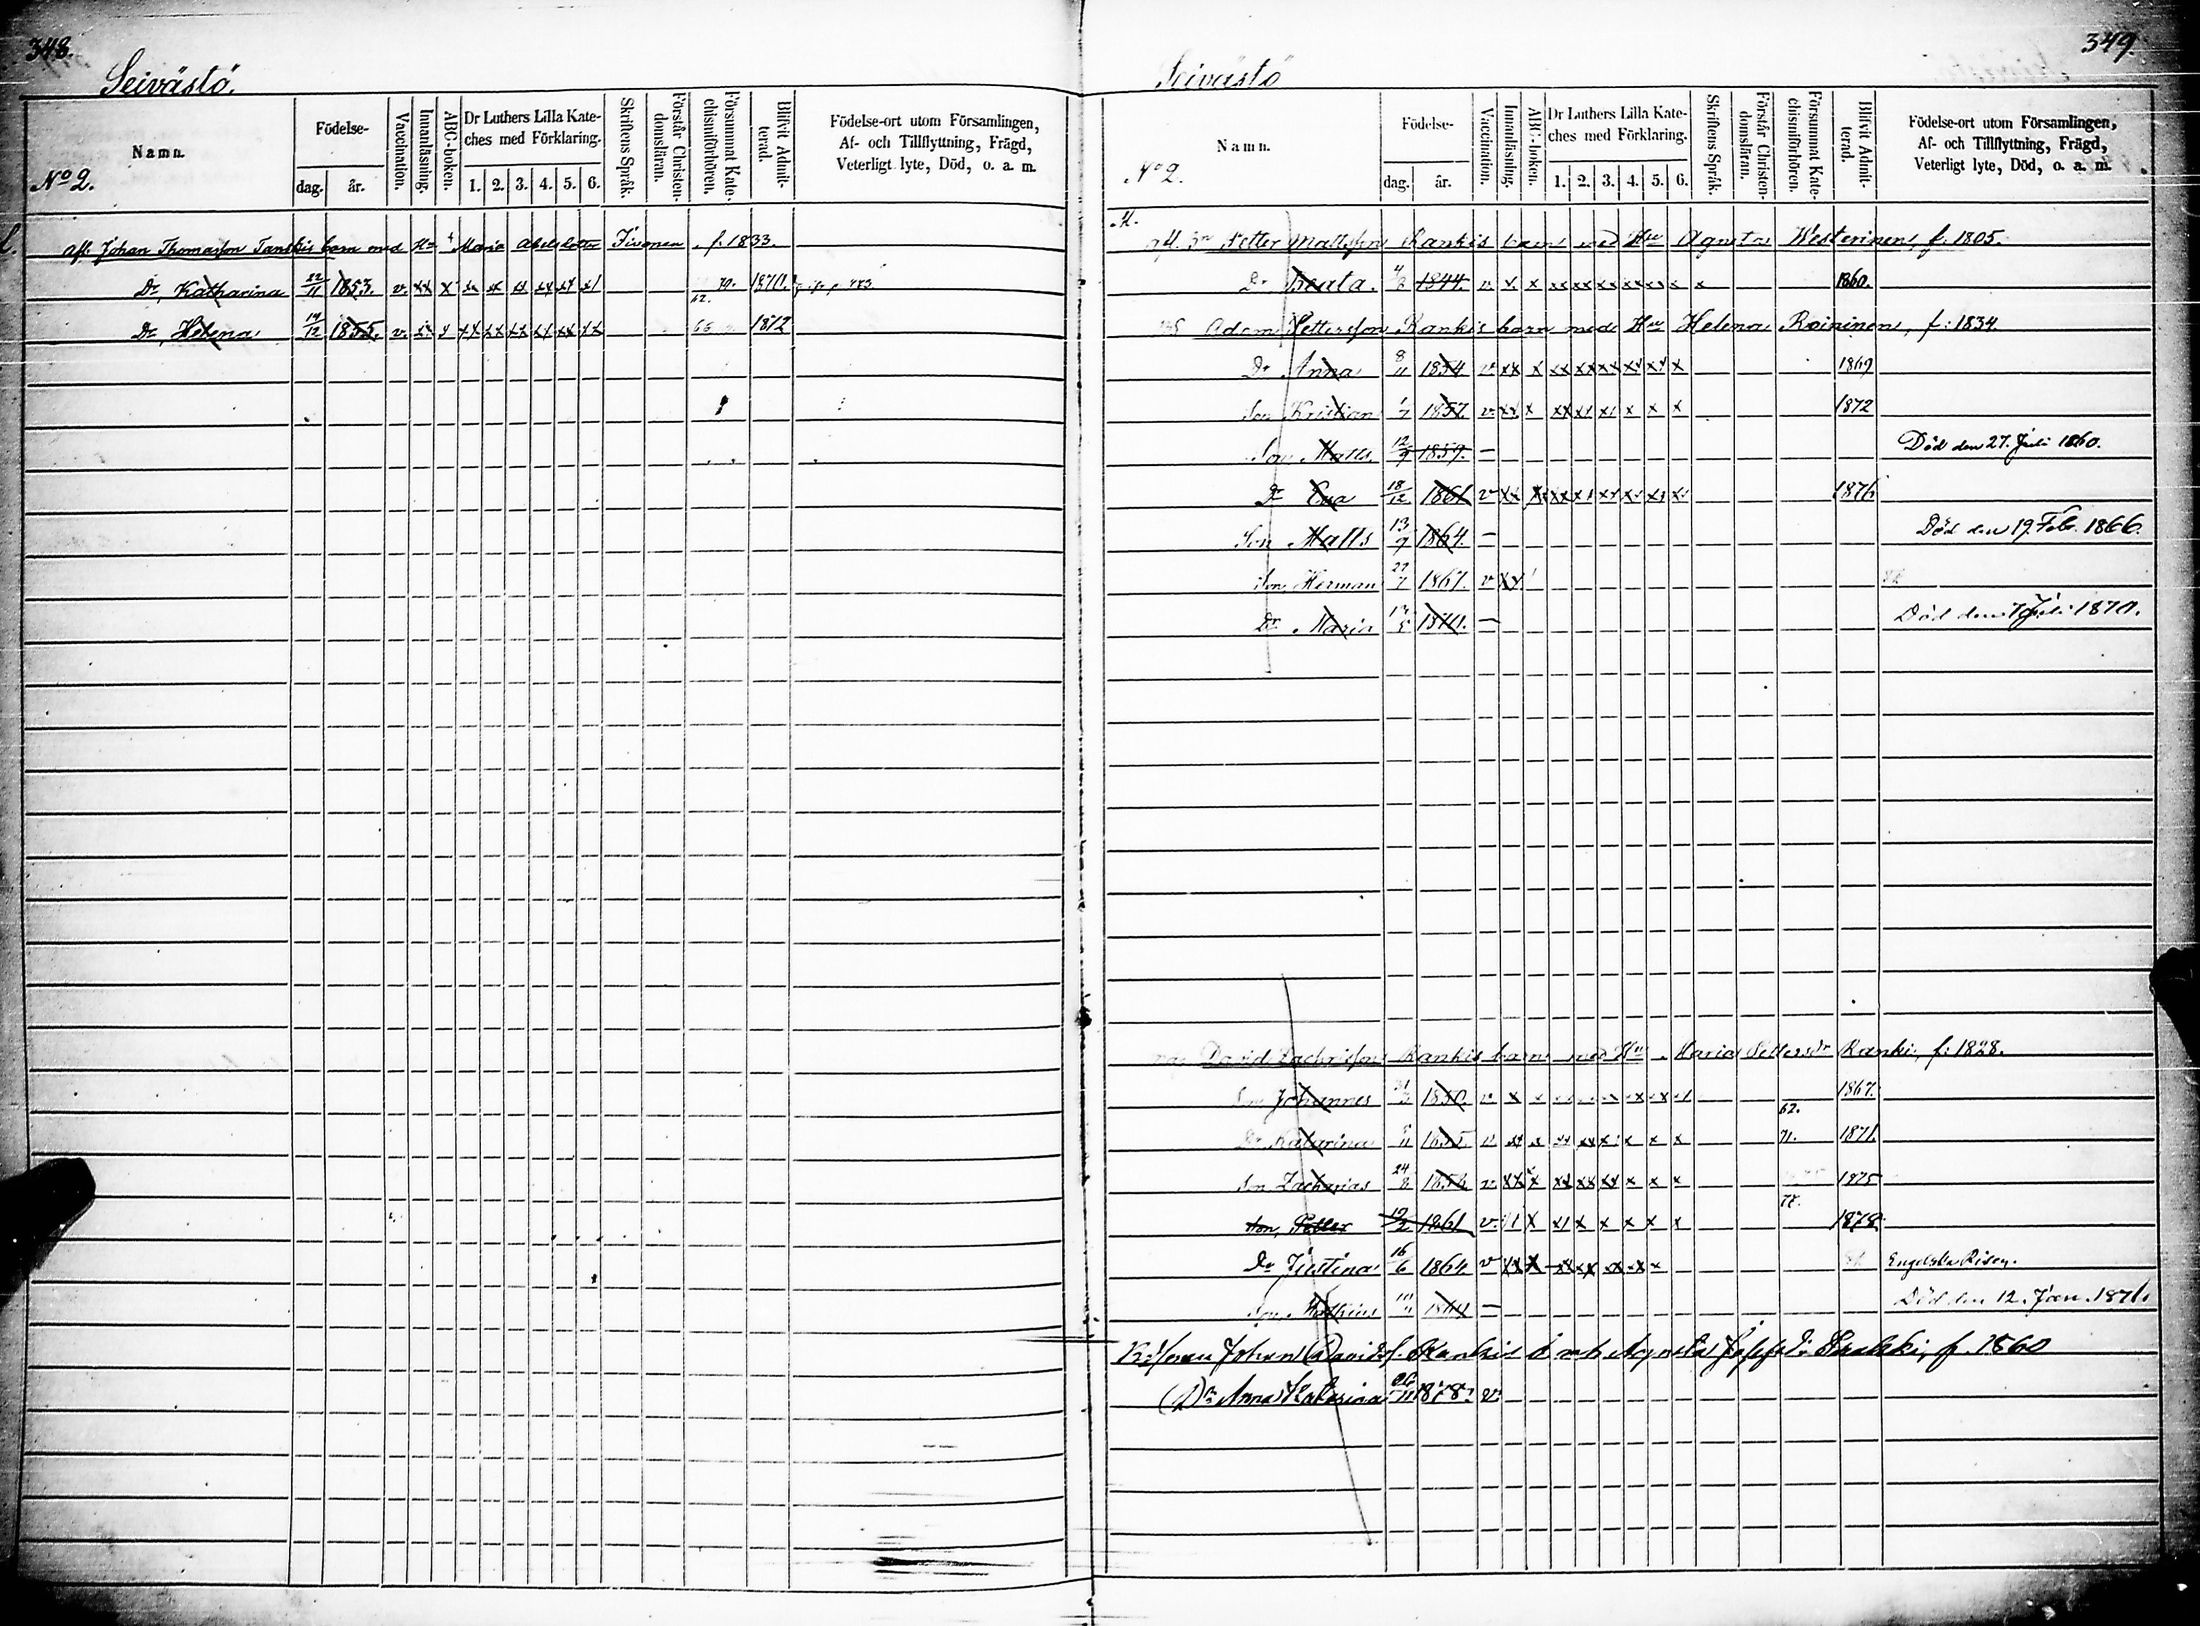 348.
Seivästö.
Namn.
Födelse-
dag.
år.
Vaccination.
Innanläsning.
ABC-boken.
Dr Luthers Lilla Kate-
ches med Förklaring.
1. 2. 3. 4. 5. 6.
Skriftens Språk.
Förstår Christen-
domsläran.
Försummat Kate-
chismiförhören.
Blifvit Admit-
terad.
Födelse-ort utom Församlingen,
Af- och Tillflyttning, Frägd,
Veterligt lyte, Död, o. a. m.
No 2.
afl. Johan Thomasson Tanskis barn med Hu Maria Abelsdotter f. 1833.
Dr, Katharina 22/11 1853. v. xx x xx xx xx xx xx x1 70. 1870.
62.
Dr, Helena 14/12 1855. v. xx x xx xx xx xx xx xx 66 1872
349.
Seivästö
Namn.
Födelse-
dag.
år.
Vaccination.
Innanläsning.
ABC-boken.
Dr Luthers Lilla Kate-
ches med Förklaring.
1. 2. 3. 4. 5. 6.
Skriftens Språk.
Förstår Christen-
domsläran.
Försummat Kate-
chismiförhören.
Blifvit Admit-
terad.
Födelse-ort utom Församlingen,
Af- och Tillflyttning, Frägd,
Veterligt lyte, Död, o. a. m.
No 2.
Petter Mattsson Rankis barn med Hu Agneta Westerinen, f: 1805.
Dr Beata. 1844. v. x x xx xx xx xx x x x 1860.
Adam Pettersson Rankis barn med Hu Helena Roininen, f: 1834.
Dr Anna 8/11 1854 v xx x xx xx xx xx xx x 1869
Son Kristian 1/7 1857 v xx x xx x1 x1 x x x 1872
Son Matts 12/9 1859. — Död den 27. Juli 1860.
Dr Eva 18/12 1861 v xx xx xx x1 xx x1 x1 x1 1876
Son Matts 13/9 1864. — Död den 19. Feb. 1866.
Son Herman 27/7 1867. v xx
Dr Maria 13/5 1870. — Död den 7 Juli 1870.
David Zachrisson Rankis barn med Hu Maria Pettersdr Ranki, f: 1828.
Son Johannes 1850. v x 1867.
62.
Dr Katarina 1855 v xx x xx xx x x x x 71. 1871.
Son Zacharias 24/8 1856 v xx x xx xx xx x x x 1875
78.
Son, Petter 19/2 1861 v. x1 x x1 x x x x x 1878.
Dr Justina 16/6 1864 v xx x xx xx xx xx x Engelska Risen.
Son 10/11 — Död den 12. Jan. 1871.
Johan Davids. Rankis b. m. h. Agneta f. 1860
Dr Anna Katarina 26/11 1878. v.